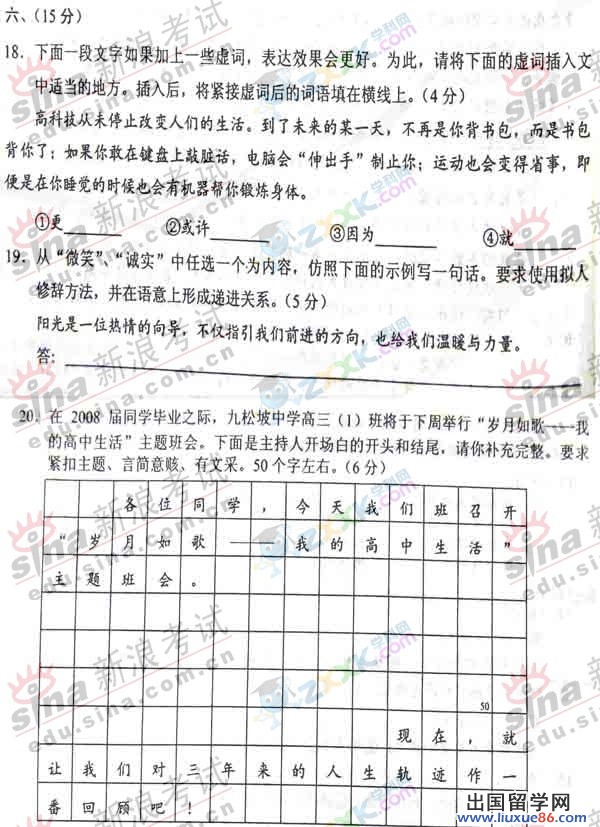 六、(15分)
18. 下面一段文字如果加上一些虚词，表达效果会更好。为此，请将下面的虚词插入文
中适当的地方。插入后，将紧接虚词后的词语填在横线上。(4分)
高科技从未停止改变人们的生活。到了未来的某一天，不再是你背书包，而是书包
背你了；如果你敢在键盘上敲脏话，电脑会“伸出手”制止你；运动也会变得省事，即
便是在你睡觉的时候也会有机器帮你锻炼身体。
①更______ ②或许______ ③因为______ ④就______
19. 从“微笑”、“诚实”中任选一个为内容，仿照下面的示例写一句话。要求使用拟人
修辞方法，并在语意上形成递进关系。(5分)
阳光是一位热情的向导，不仅指引我们前进的方向，也给我们温暖与力量。
答：
20. 在 2008 届同学毕业之际，九松坡中学高三（1）班将于下周举行“岁月如歌——我
的高中生活”主题班会。下面是主持人开场白的开头和结尾，请你补充完整。要求
紧扣主题、言简意赅、有文采。50个字左右。(6分)
各位同学，今天我们班召开
“岁月如歌——我的高中生活”
主题班会。
50
现在，就
让我们对三年来的人生轨迹作一
番回顾吧！
sina 新浪考试
edu.sina.com.cn
ZXXK.COM
学科网
出国留学网
www.liuxue86.com